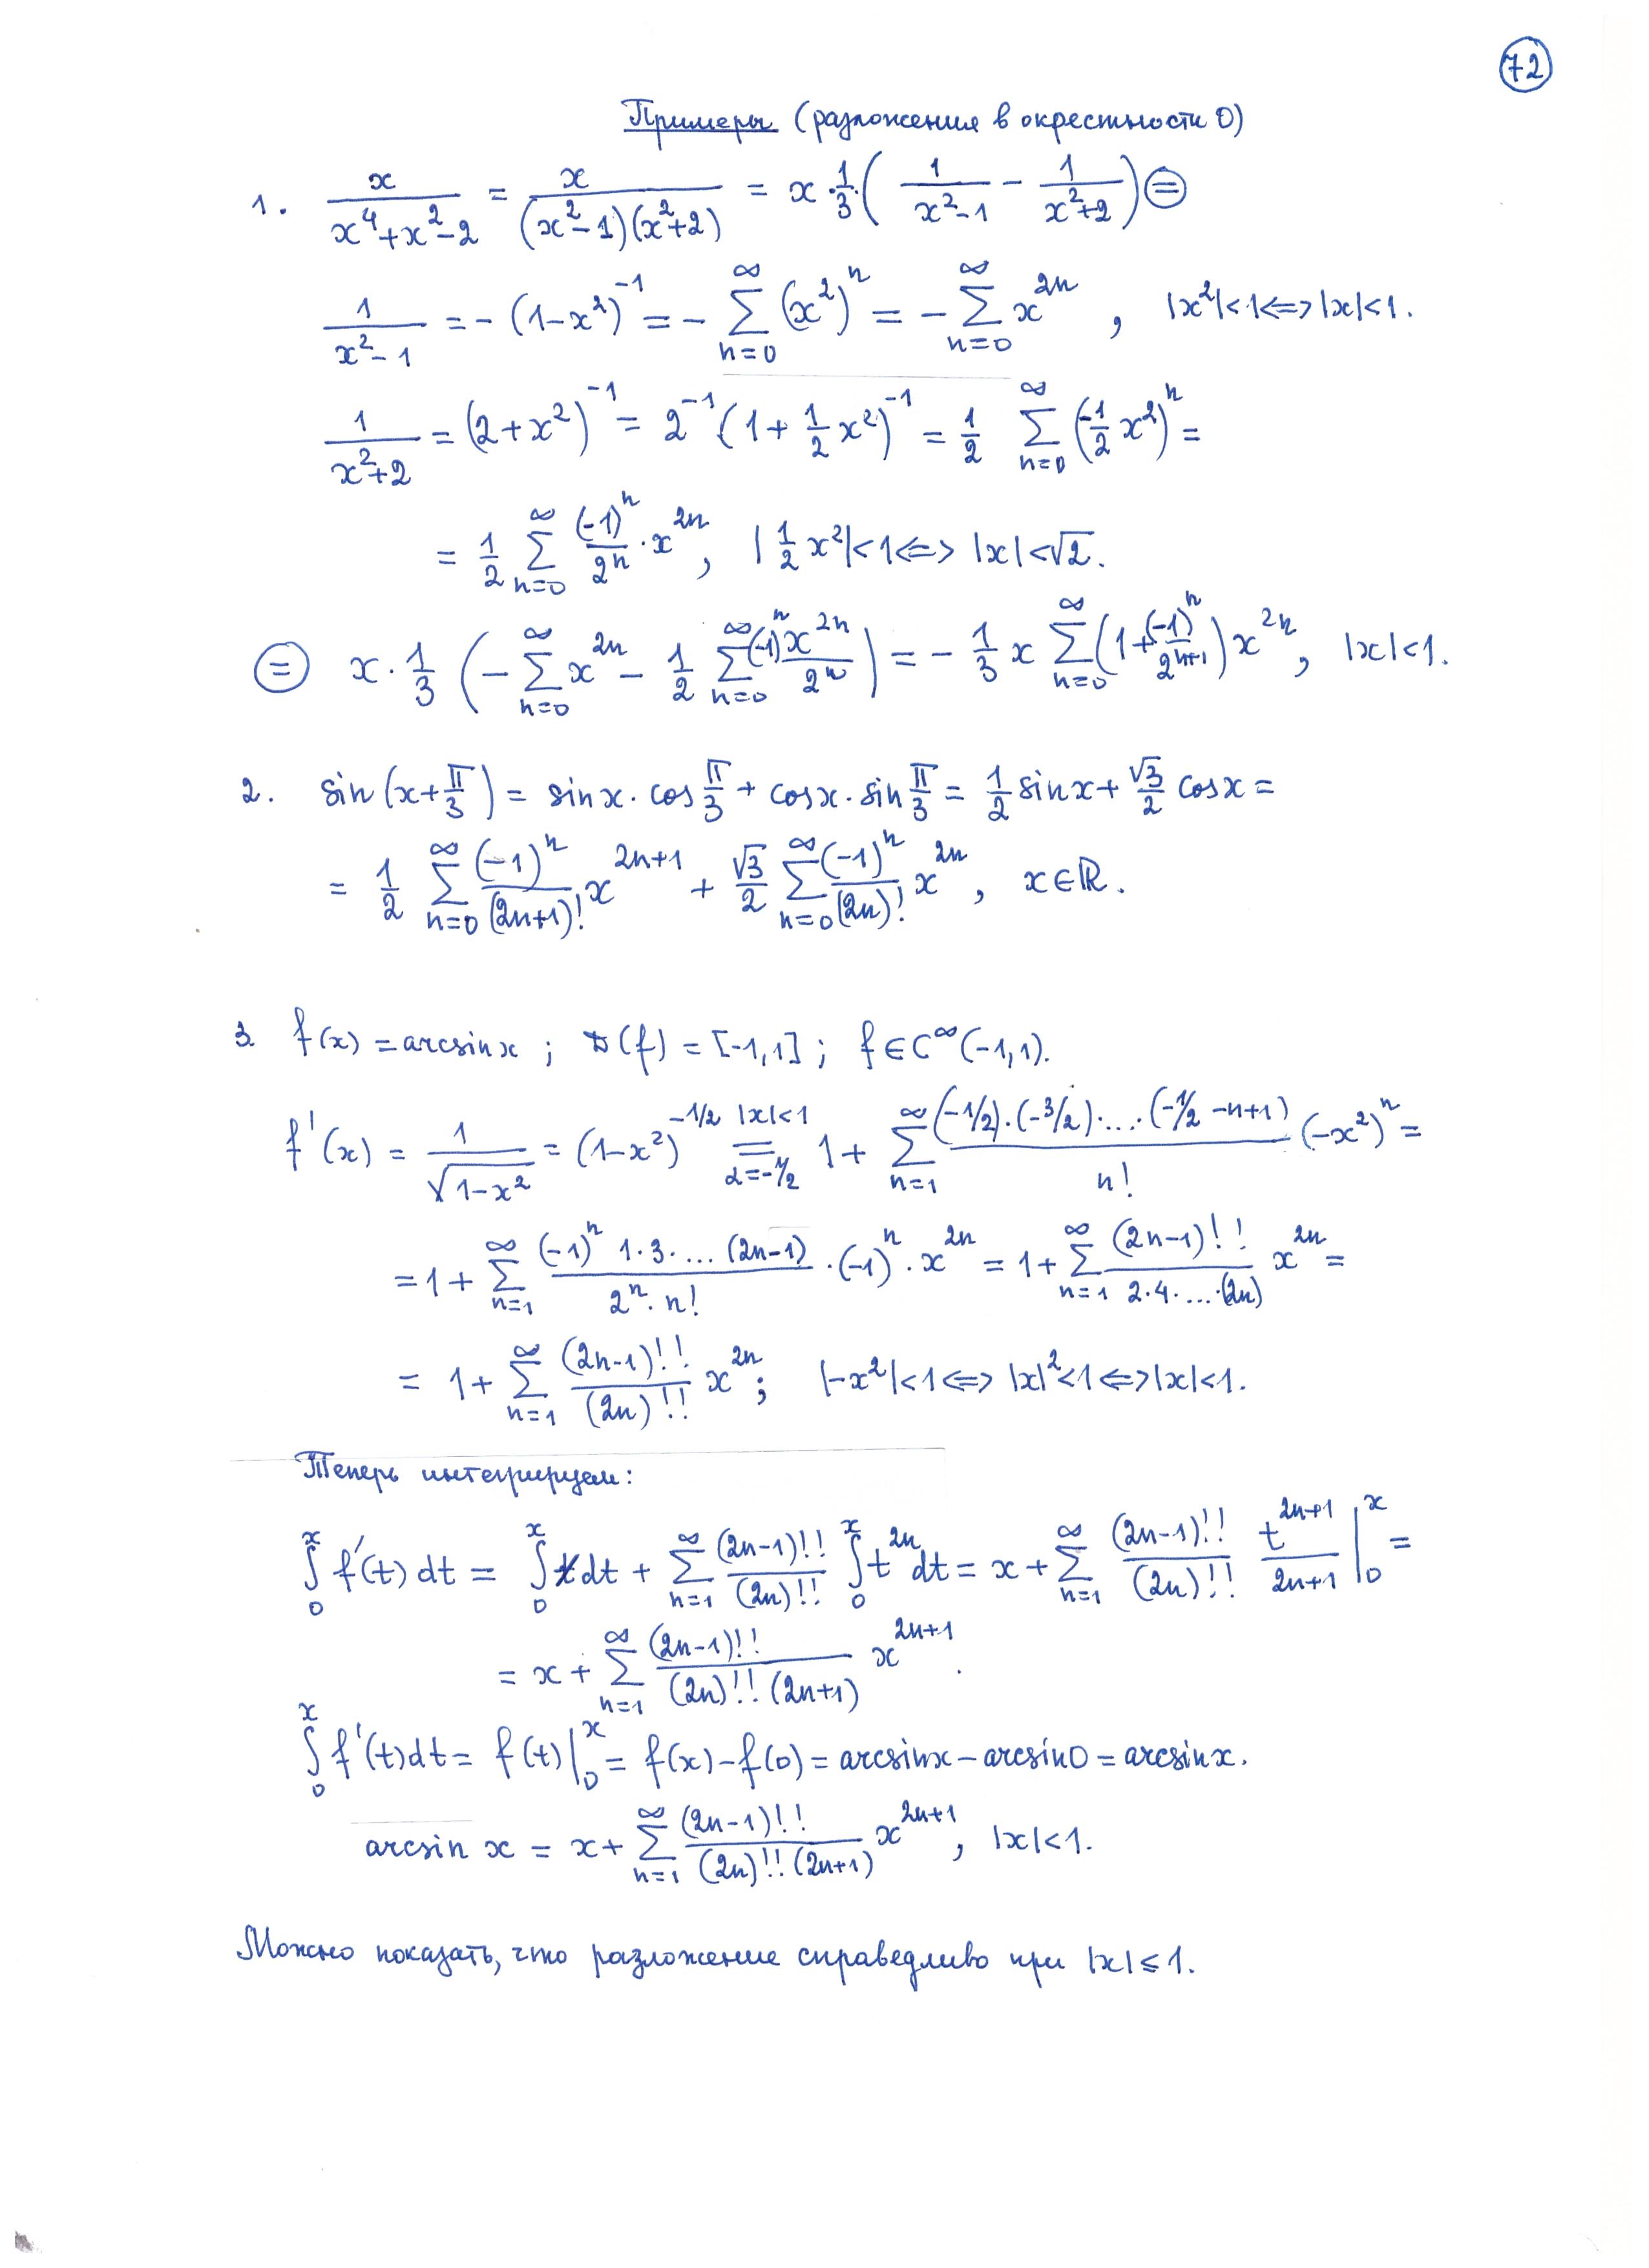 72
Примеры (разложения в окрестности 0)
1. x/(x⁴+x²-2) = x/((x²-1)(x²+2)) = x·1/3·(1/(x²-1) - 1/(x²+2)) ⊜
1/(x²-1) = -(1-x²)⁻¹ = -∑_{n=0}^{∞} (x²)ⁿ = -∑_{n=0}^{∞} x²ⁿ, |x²|<1 <=> |x|<1.
1/(x²+2) = (2+x²)⁻¹ = 2⁻¹(1+1/2 x²)⁻¹ = 1/2 ∑_{n=0}^{∞} (-1/2 x²)ⁿ =
= 1/2 ∑_{n=0}^{∞} (-1)ⁿ/2ⁿ · x²ⁿ, |1/2 x²|<1 <=> |x|<√2.
⊜ x·1/3 (-∑_{n=0}^{∞} x²ⁿ - 1/2 ∑_{n=0}^{∞} (-1)ⁿx²ⁿ/2ⁿ) = -1/3 x ∑_{n=0}^{∞} (1+(-1)ⁿ/2ⁿ⁺¹) x²ⁿ, |x|<1.
2. sin(x+π/3) = sin x·cos π/3 + cos x·sin π/3 = 1/2 sin x + √3/2 cos x =
= 1/2 ∑_{n=0}^{∞} (-1)ⁿ/(2n+1)! x²ⁿ⁺¹ + √3/2 ∑_{n=0}^{∞} (-1)ⁿ/(2n)! x²ⁿ, x∈ℝ.
3. f(x) = arcsin x; D(f) = [-1,1]; f∈C^∞(-1,1).
f'(x) = 1/√(1-x²) = (1-x²)^{-1/2} =^{|x|<1}_{α=-1/2} 1+∑_{n=1}^{∞} (-1/2)·(-3/2)·...·(-1/2-n+1)/n! (-x²)ⁿ =
= 1+∑_{n=1}^{∞} (-1)ⁿ 1·3·...(2n-1)/(2ⁿ·n!) ·(-1)ⁿ·x²ⁿ = 1+∑_{n=1}^{∞} (2n-1)!!/(2·4·...·(2n)) x²ⁿ =
= 1+∑_{n=1}^{∞} (2n-1)!!/(2n)!! x²ⁿ; |-x²|<1 <=> |x|²<1 <=> |x|<1.
Теперь интегрируем:
∫_0^x f'(t)dt = ∫_0^x dt + ∑_{n=1}^{∞} (2n-1)!!/(2n)!! ∫_0^x t²ⁿdt = x+∑_{n=1}^{∞} (2n-1)!!/(2n)!! t²ⁿ⁺¹/(2n+1) |_0^x =
= x+∑_{n=1}^{∞} (2n-1)!!/((2n)!!(2n+1)) x²ⁿ⁺¹.
∫_0^x f'(t)dt = f(t)|_0^x = f(x)-f(0) = arcsinx-arcsin0 = arcsinx.
arcsin x = x+∑_{n=1}^{∞} (2n-1)!!/((2n)!!(2n+1)) x²ⁿ⁺¹, |x|<1.
Можно показать, что разложение справедливо при |x|⩽1.